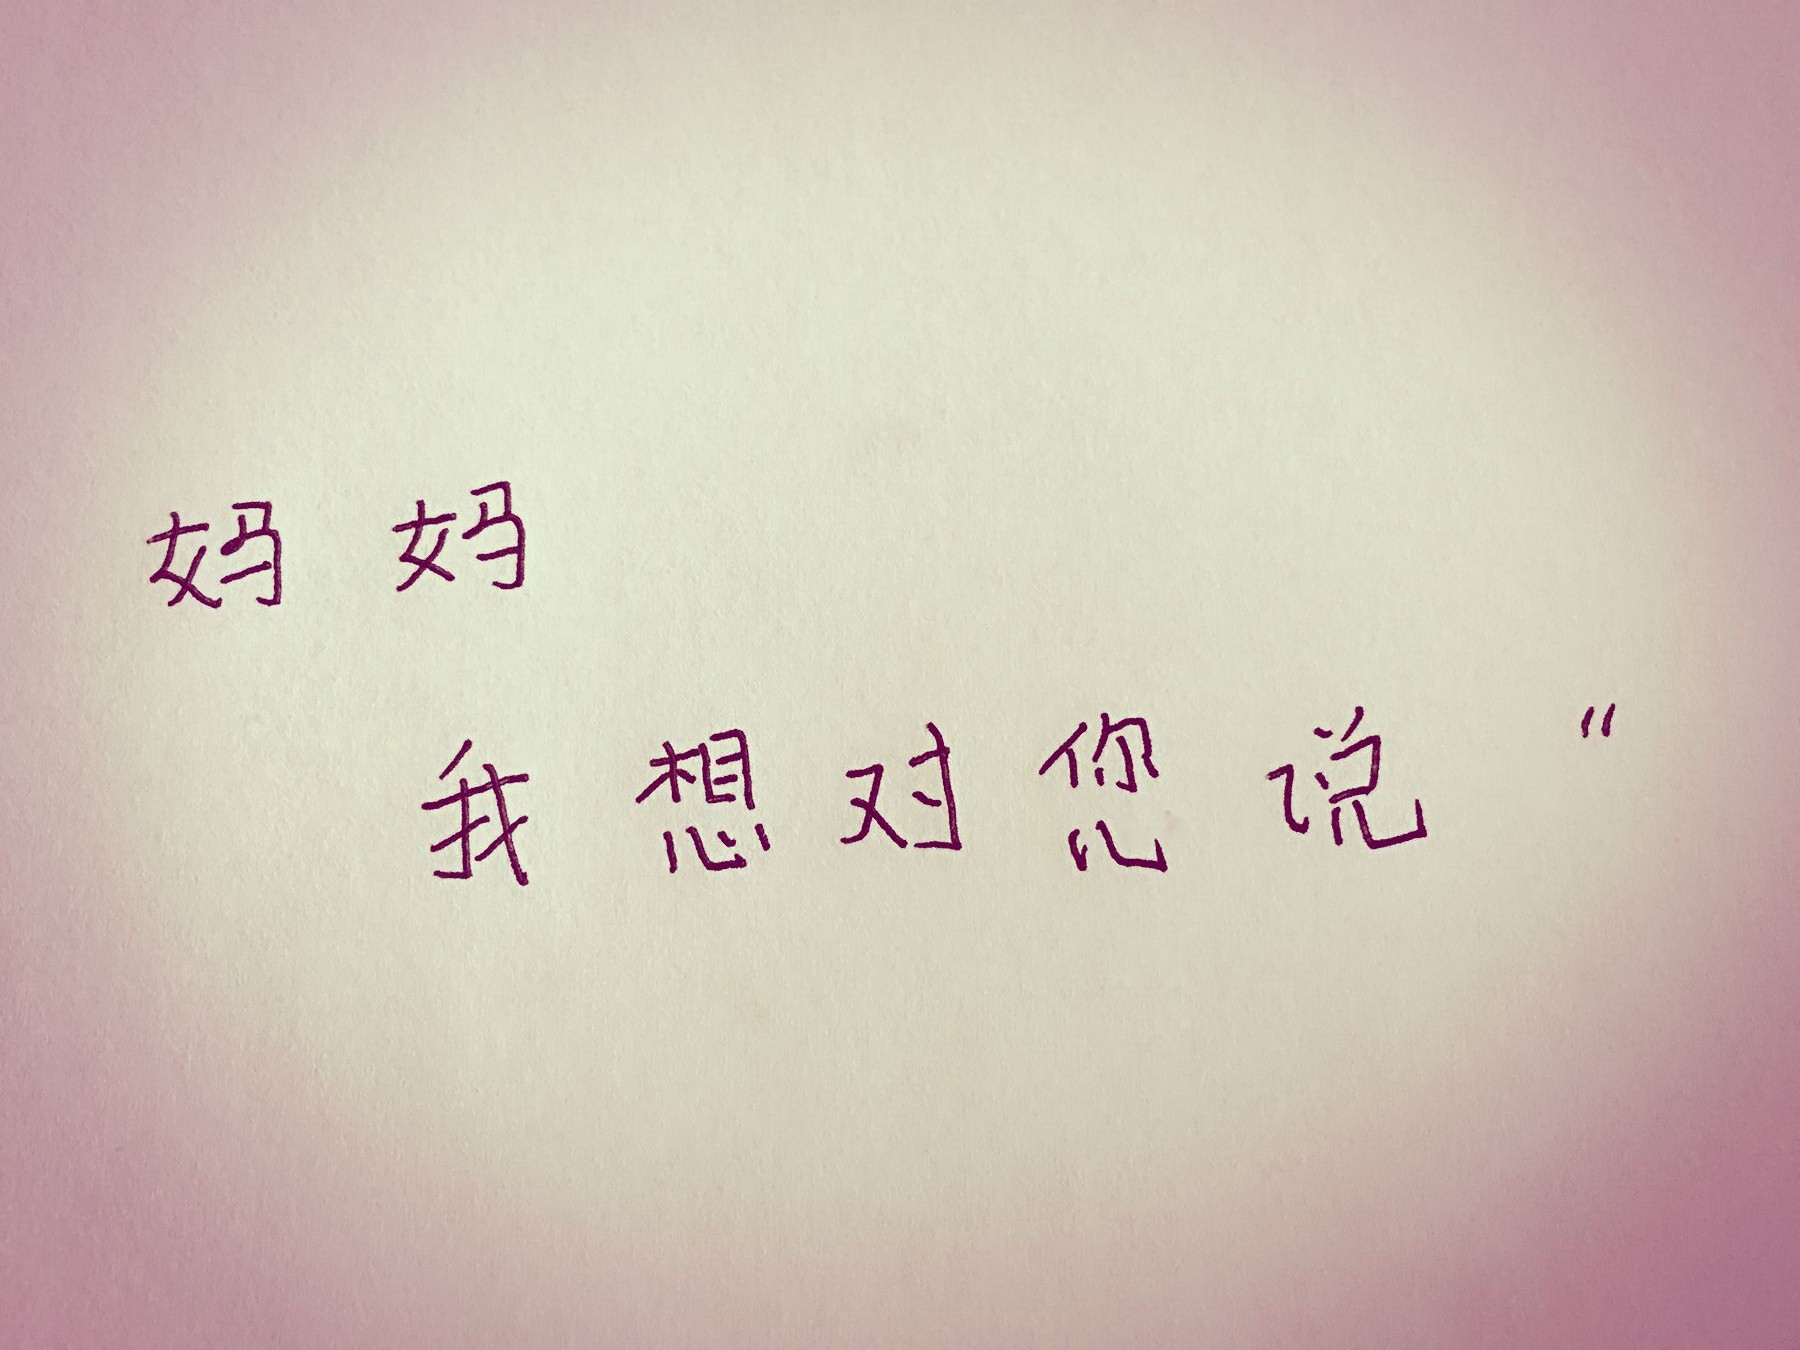 妈妈
我想对您说“